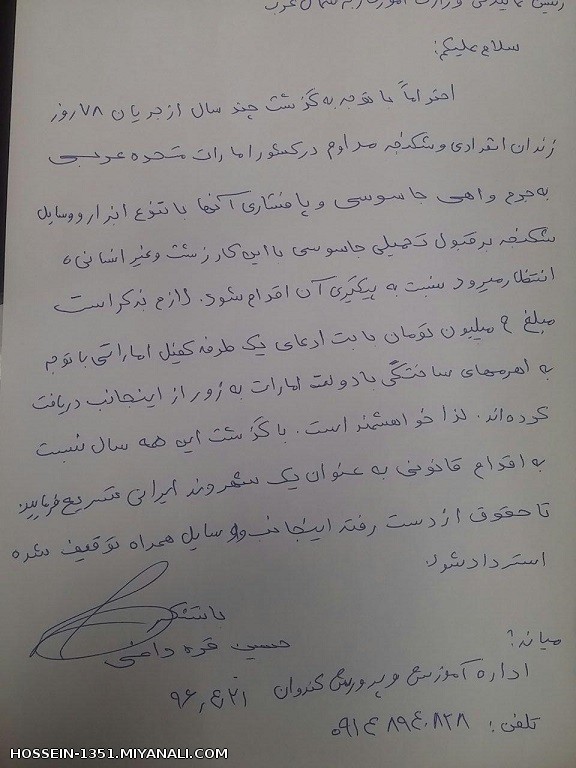 رئیس نمایندگی وزارت امور خارجه شمال غرب
سلام علیکم:
احتراماً با توجه به گذشت چند سال از جریان ۷۸ روز
زندان انفرادی و شکنجه مداوم در کشور امارات متحده عربی
به جرم واهی جاسوسی و پافشاری آنها با تنوع ابزار و وسایل
شکنجه بر قبول تحمیلی جاسوسی با این کار زشت و غیر انسانی
انتظار میرود نسبت به پیگیری آن اقدام شود. لازم بذکر است
مبلغ ۴ میلیون تومان بابت ادعای یک طرفه کفیل اماراتی با توجه
به اهرمهای ساختگی با دولت امارات به زور از اینجانب دریافت
کرده‌اند. لذا خواهشمند است. با گذشت این همه سال نسبت
به اقدام قانونی به عنوان یک شهروند ایرانی تسریع فرمایید.
تا حقوق از دست رفته اینجانب و وسایل همراه توقیف شده
استرداد شود.
با تشکر
حسین قره داغی
میانه:
اداره آموزش و پرورش کندوان ۹۶٫۴٫۲۱
تلفن: ۰۹۱۴۸۹۴۰۸۲۸
HOSSEIN-1351.MIYANALI.COM